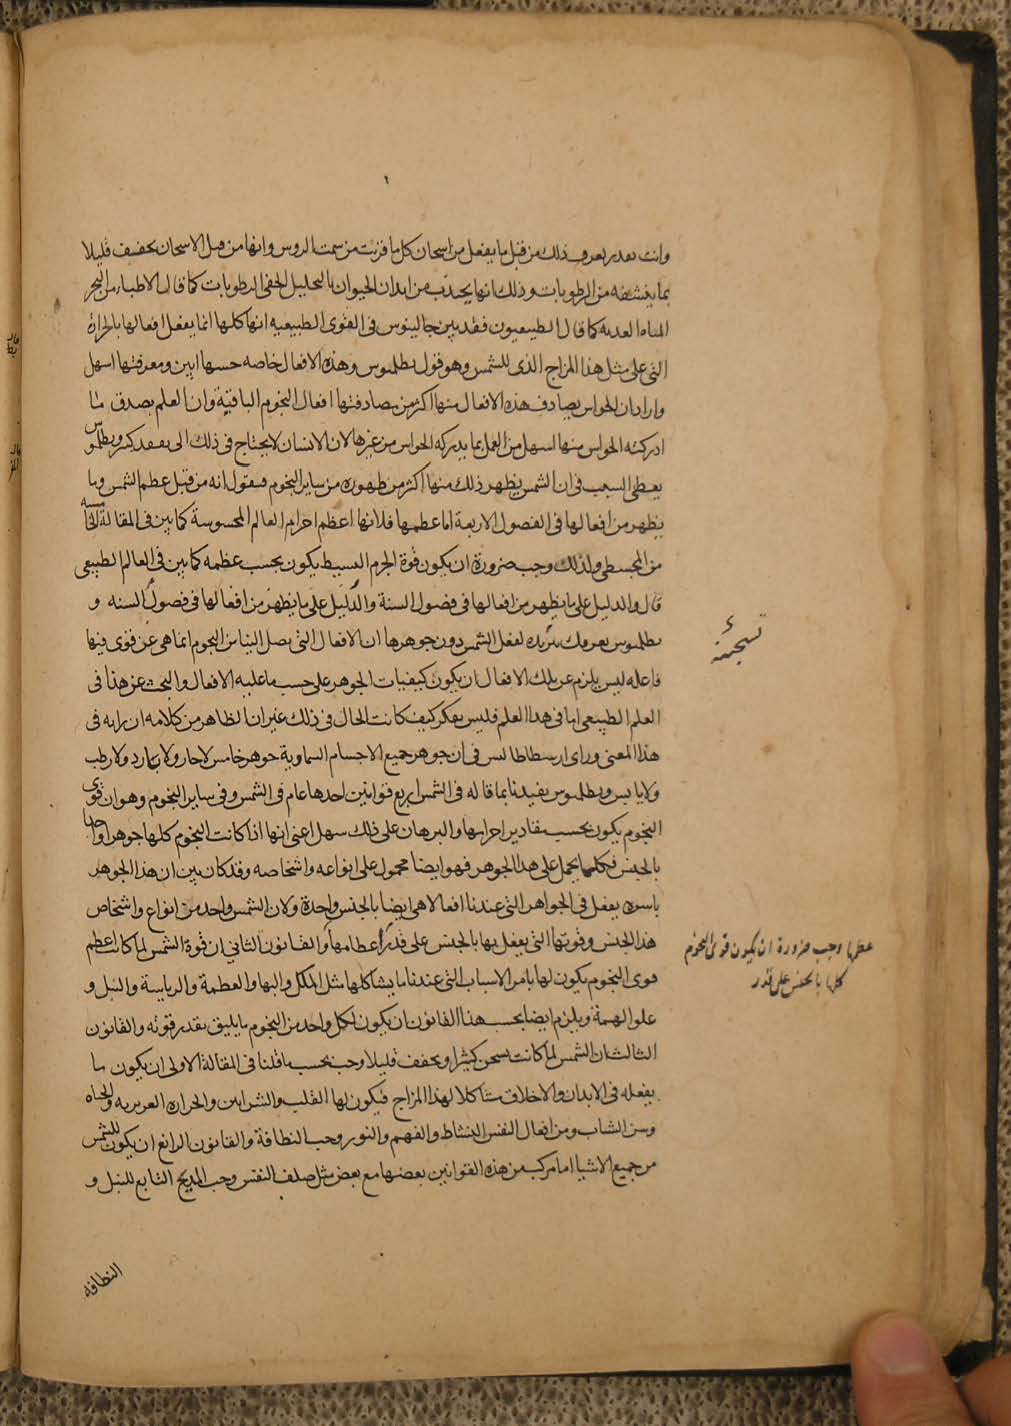 وانت تقدر تعرف ذلك من قبل ما يفعل من اسخان كل ما قربت من سمت الروس وانها من قبل الاسخان تجفف قليلا
بما ينشفه من الرطوبات وذلك انها تجتذب من ابدان الحيوان بالتحليل الخفى الرطوبات كما قال الاطباء ومن البحر
المياه العذبة كما قال الطبيعيون فقد بين جالينوس فى القوى الطبيعيه انها كلها انما يفعل افعالها بالحرارة
التى على مثل هذا المزاج الذى للشمس وهو قول بطلميوس وهذه الافعال خاصه حسها ابين ومعرفتها اسهل
واراد ان الحواس يصادف هذه الافعال منها اكثر من مصادفتها افعال النجوم الباقية وان العلم يصدق ما
ادركته الحواس منها اسهل من العمل بما يدركه الحواس من غيرها لان الانسان لا يحتاج فى ذلك الى تفقد كثير وبطلميوس
يعطى السبب فى ان الشمس يظهر ذلك منها اكثر من ظهوره من ساير النجوم فيقول انه من قبل عظم الشمس وما
يظهر من افعالها فى الفصول الاربعة اما عظمها فلانها اعظم اجرام العالم المحسوسة كما بين فى المقالة الخامسه
من المجسطى ولذلك وجب ضرورة ان يكون قوة الجرم البسيط يكون بحسب عظمه كما بين فى العالم الطبيعى
قال والدليل على ما يظهر من افعالها فى فصول السنة والدليل على ما يظهر من افعالها فى فصول السنه و
بطلميوس يعرفك تبريده لفعل الشمس دون جوهرها ان الافعال التى تصل الينا من النجوم انما هى عن قوى فيها
فاعله ليس يلزم عن تلك الافعال ان يكون كيفيات الجوهر على حسب ما عليه الافعال والبحث عن هذا فى
العلم الطبيعى اما فى هذا العلم فليس يفكر كيف كانت الحال فى ذلك غير ان الظاهر من كلامه ان رايه فى
هذا المعنى وراى ارسطاطاليس فى ان جوهر جميع الاجسام السماوية جوهر خامس لا حار ولا بارد ولا رطب
ولا يابس وبطلميوس يفيدنا بما قاله فى الشمس اربع قوانين احدها عام فى الشمس وفى ساير النجوم وهو ان قوى
النجوم يكون بحسب مقادير اجرامها والبرهان على ذلك سهل اعنى انها اذا كانت النجوم كلها جوهرا واحدا
بالجنس فكلما يحمل على هذا الجوهر فهو ايضا محمول على انواعه واشخاصه وقد كان بين ان هذا الجوهر
باسره يفعل فى الجواهر التى عندنا افعالا هى ايضا بالجنس واحدة ولان الشمس واحد من انواع واشخاص
هذا الجنس وقوتها التى يفعل بها بالجنس على قدر اعظامها والقانون الثانى ان قوة الشمس لما كان اعظم
قوى النجوم يكون لها بامر الاسباب التى عندنا ما يشاكلها مثل الملك والبها والعظمة والرياسة والنبل و
علو الهمة ويلزم ايضا بحسب هذا القانون ان يكون لكل واحد من النجوم ما يليق بقدر قوته والقانون
الثالث ان الشمس لما كانت تسخن كثيرا وتجفف قليلا وجب بحسب ما قلنا فى المقالة الاولى ان يكون ما
يفعله فى الابدان والاخلاق مشاكلا لهذا المزاج فيكون لها القلب والشرايين والحراره الغريزيه والحياه
وسن الشباب ومن افعال النفس النشاط والفهم والنور وحب النظافة والقانون الرابع ان يكون للشمس
من جميع الاشيا اما مركب من هذه القوانين بعضها مع بعض مثل صلف النفس وحب المديح التابع للنبل و
النظافه
عظمها وجب ضرورة ان يكون قوى النجوم
كلها بالجنس على قدر